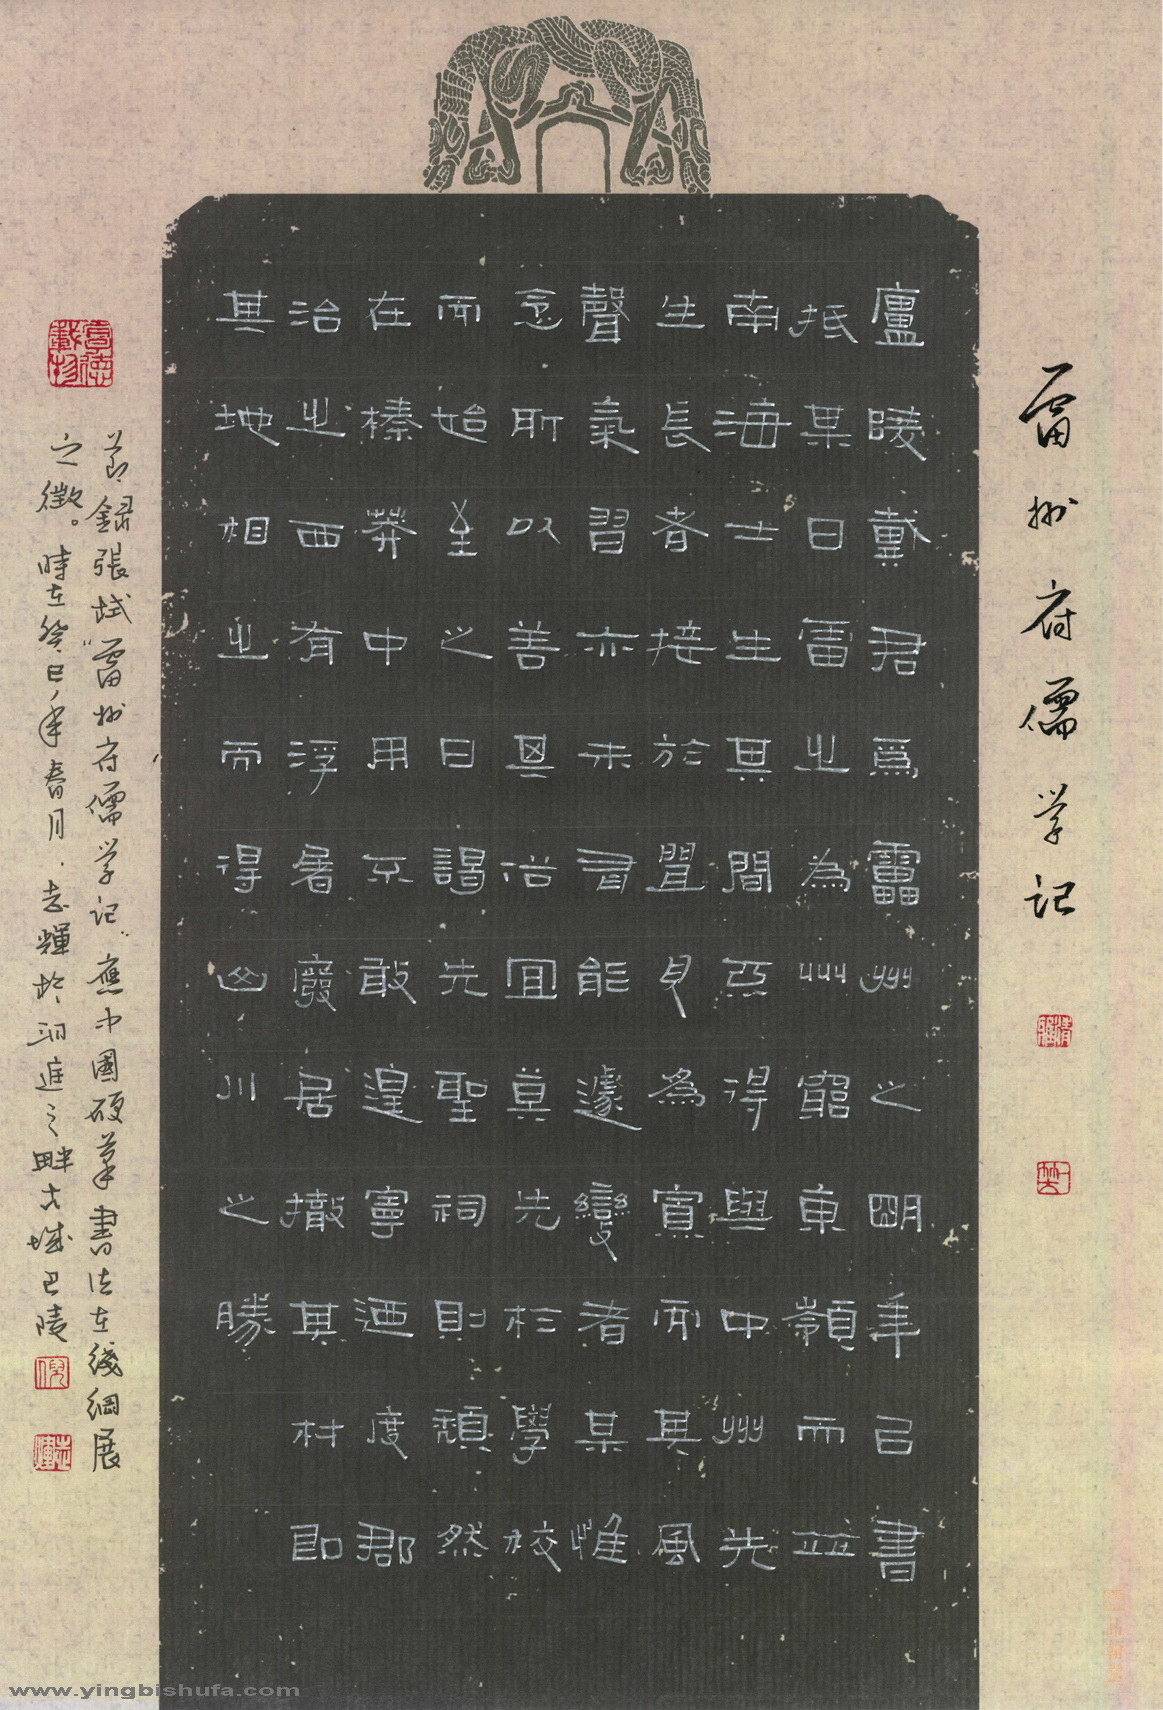 雷州府儒学记
廬陵戴君爲靁州之明年㠯書
抵某曰雷之為州窮東嶺而並
南海士生其間不得與中州先
生長者接於聞見為寡而其風
聲氣習亦未有能遽變者某惟
念所以善其俗宜莫先於學校
而始至之日謁先聖祠則頹然
在榛莽中用不敢遑寧迺度郡
治之西有浮屠廢居撤其材即
其地相之而得山川之勝
节録張栻"雷州府儒学记"應中國硬筆書法在綫網展
之徵。時在癸巳年春月.志輝於洞庭之畔古城巴陵
厚德載物
www.yingbishufa.com